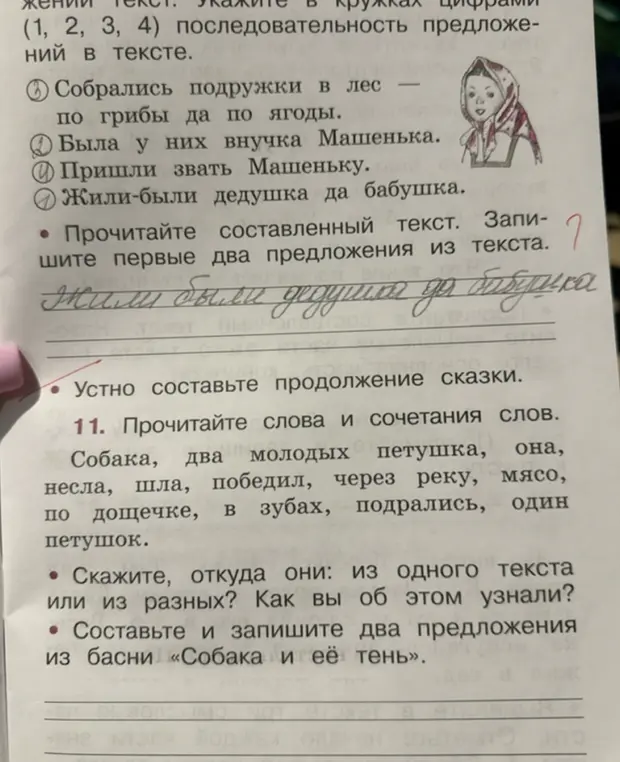 жении текст. Укажите в кружках цифрами
(1, 2, 3, 4) последовательность предложе-
ний в тексте.
3 Собрались подружки в лес —
по грибы да по ягоды.
2 Была у них внучка Машенька.
4 Пришли звать Машеньку.
1 Жили-были дедушка да бабушка.
• Прочитайте составленный текст. Запи-
шите первые два предложения из текста. ?
Жили были дедушка да бабушка
• Устно составьте продолжение сказки.
11. Прочитайте слова и сочетания слов.
Собака, два молодых петушка, она,
несла, шла, победил, через реку, мясо,
по дощечке, в зубах, подрались, один
петушок.
• Скажите, откуда они: из одного текста
или из разных? Как вы об этом узнали?
• Составьте и запишите два предложения
из басни «Собака и её тень».